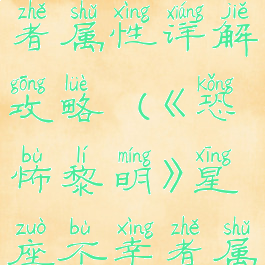 zhě shǔ xìng xiáng jiě
者属性详解
gōng lüè kǒng
攻略（《恐
bù lí míng xīng
怖黎明》星
zuò bù xìng zhě shǔ
座不幸者属